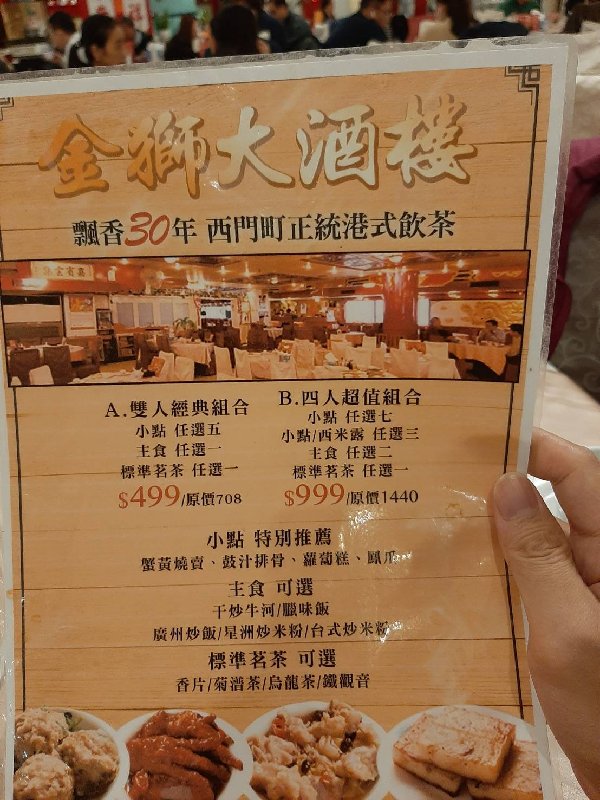 金獅大酒樓
飄香30年 西門町正統港式飲茶
A.雙人經典組合
小點 任選五
主食 任選一
標準茗茶 任選一
$499/原價708
B.四人超值組合
小點 任選七
小點/西米露 任選三
主食 任選二
標準茗茶 任選一
$999/原價1440
小點 特別推薦
蟹黃燒賣、鼓汁排骨、蘿蔔糕、鳳爪
主食 可選
干炒牛河/臘味飯
廣州炒飯/星洲炒米粉/台式炒米粉
標準茗茶 可選
香片/菊普茶/烏龍茶/鐵觀音